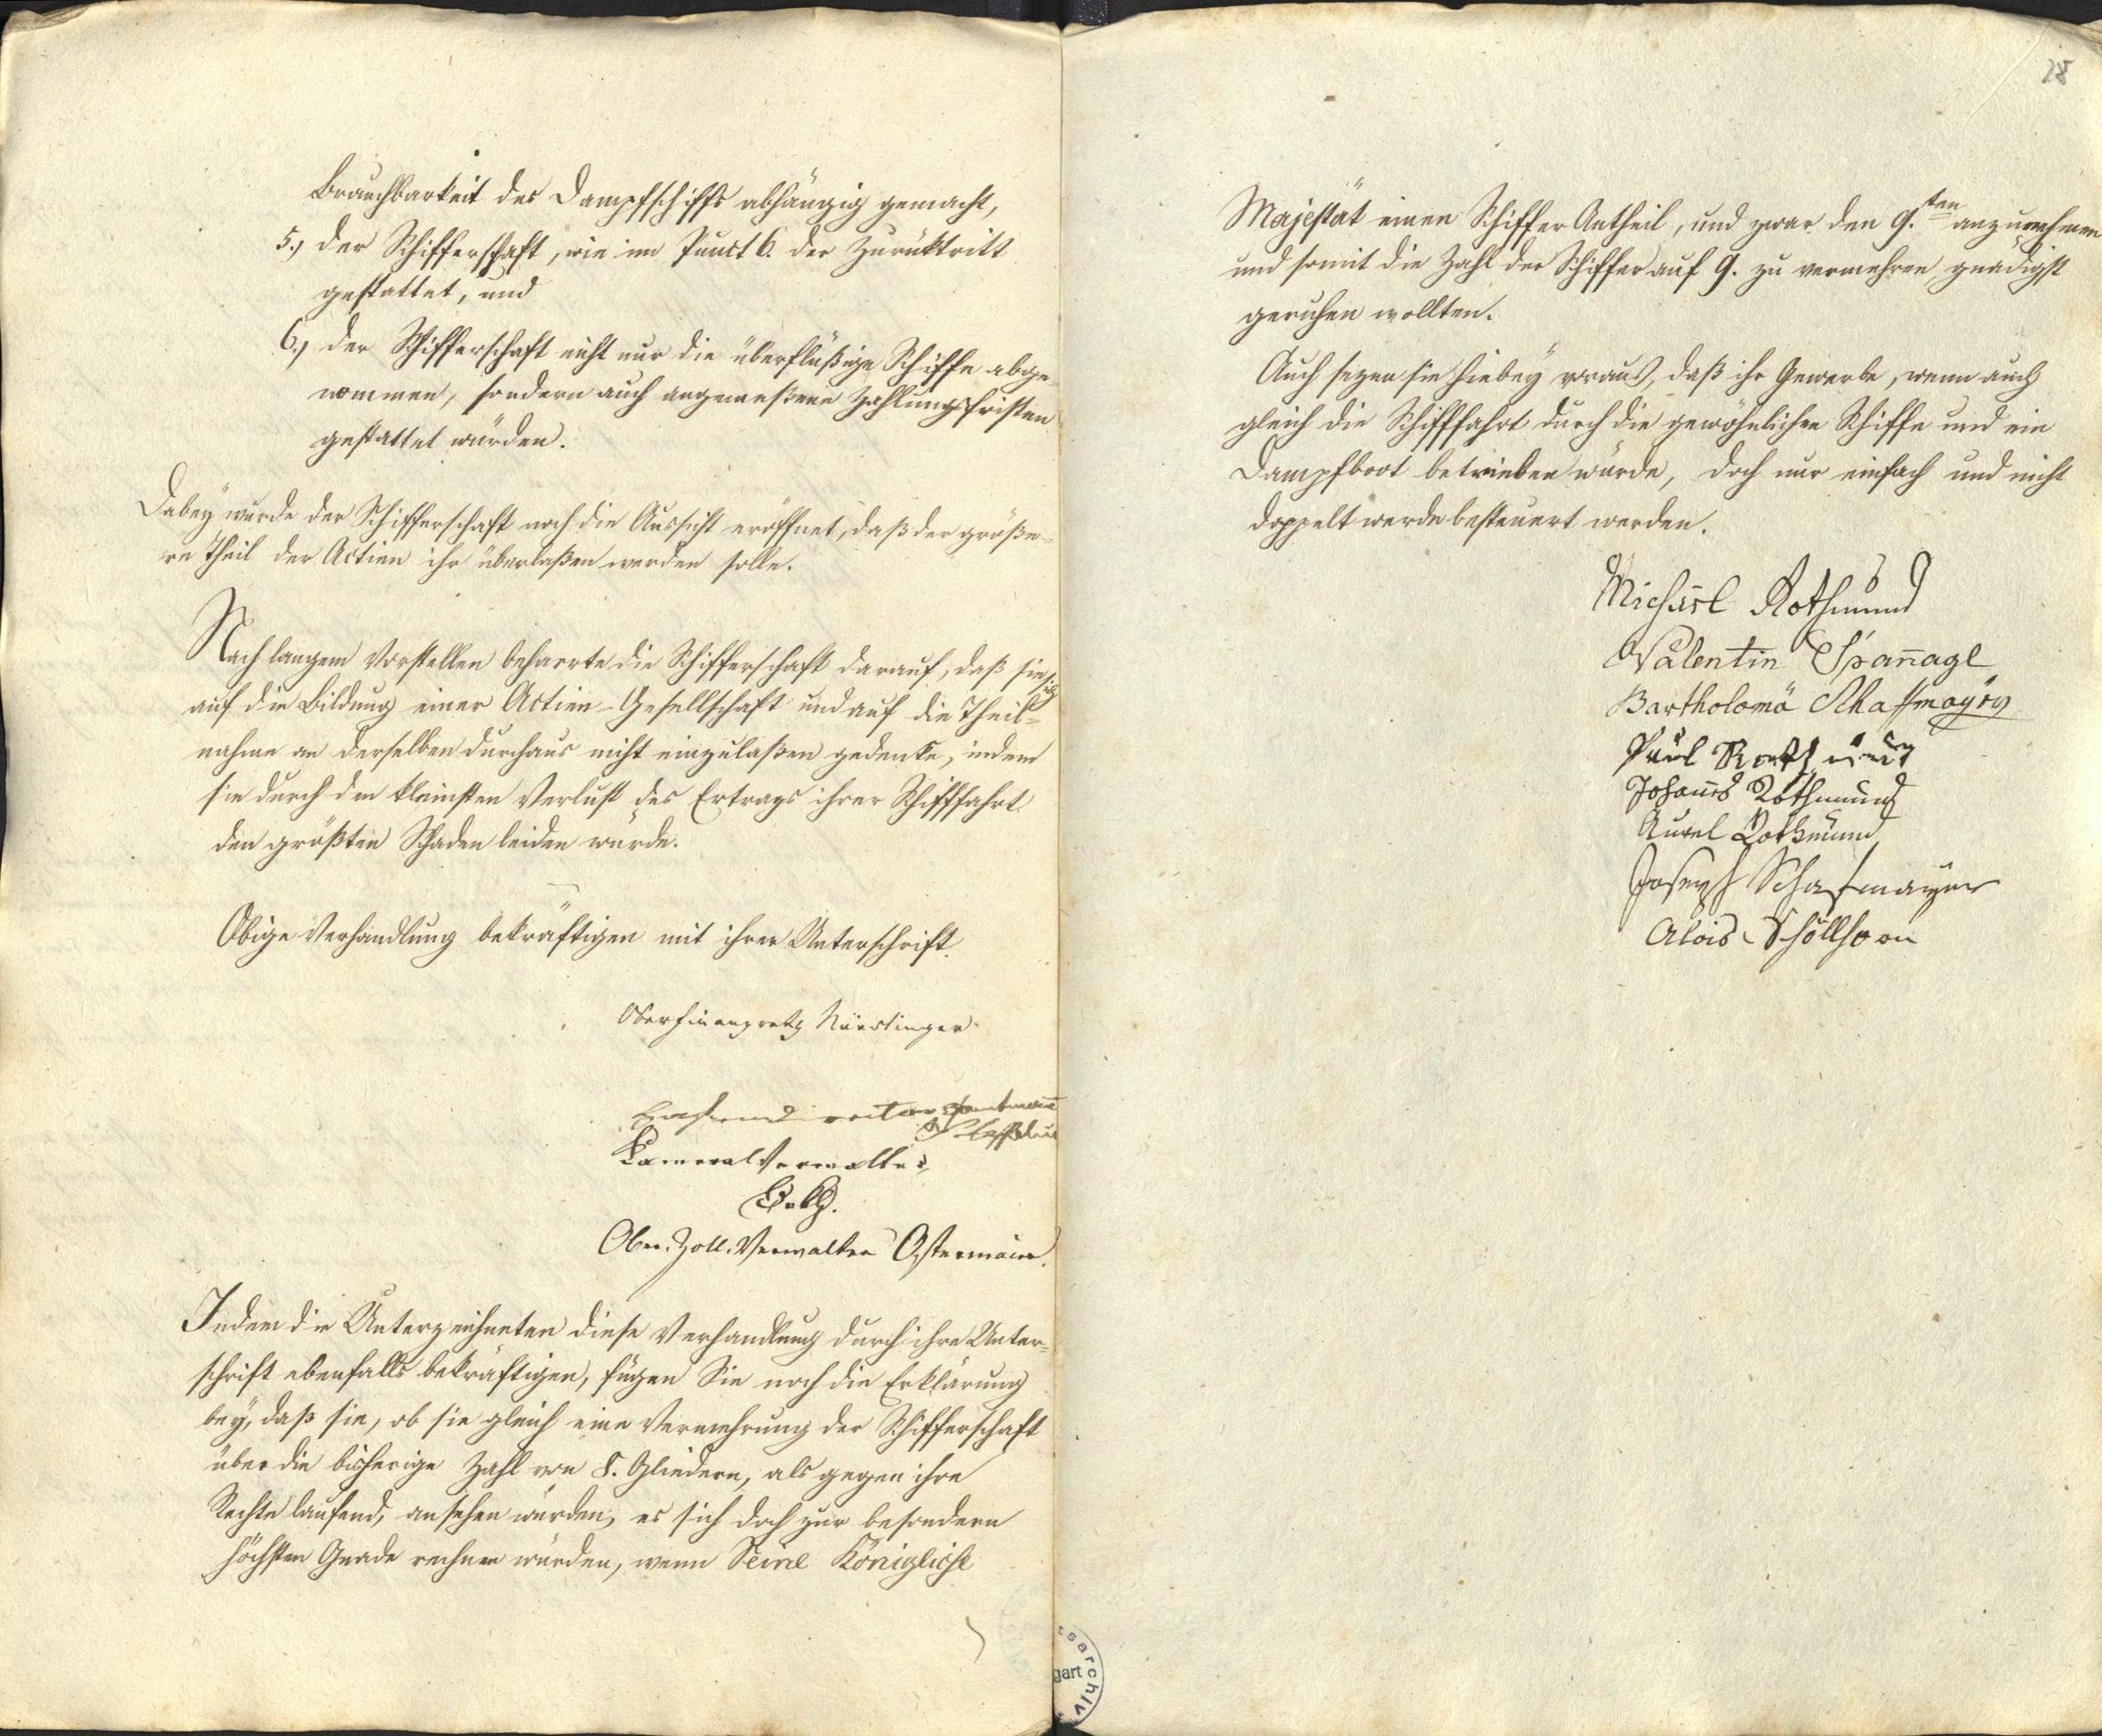 Brauchbarkeit des Dampfschiffs abhängig gemacht,
5.) der Schifferschaft, wie im Punct 6. der Zurüktritt
gestattet, und
6.) der Schifferschaft nicht nur die überflüßige Schiffe abge-
nommen, sondern auch angemeßene Zahlungsfristen
gestattet würden.
Dabey wurde der Schifferschaft noch die Aussicht eröffnet, daß der größe-
re Theil der Actien ihr überlaßen werden solle.
Nach langem Vorstellen beharrte die Schifferschaft darauf, daß sie sich
auf die Bildung einer Actien-Gesellschaft und auf die Theil-
nahme an derselben durchaus nicht einzulaßen gedenke, indem
sie durch den kleinsten Verlust des Ertrags ihrer Schifffahrt
den größten Schaden leiden würde.
Obige Verhandlung bekräftigen mit ihrer Unterschrift.
Oberfinanzrath Nürtinger.
Kameralverwalter
Ober-Zoll-Verwalter Ostermaier.
Indem die Unterzeichneten diese Verhandlung durch ihre Unter-
schrift ebenfalls bekräftigen, fügen Sie noch die Erklärung
bey, daß sie, ob sie gleich eine Vermehrung der Schifferschaft
über die bisherige Zahl von 8. Gliedern, als gegen ihre
Rechte laufend, ansehen würden, es sich doch zur besondern
höchsten Gnade rechnen würden, wenn Seine Königliche
28
Majestät einen Schiffer Antheil, und zwar den 9.ten anzunehmen
und somit die Zahl der Schiffer auf 9. zu vermehren gnädigst
geruhen wollten.
Auch sezen sie hiebey voraus, daß ihr Gewerbe, wenn auch
gleich die Schifffahrt durch die gewöhnlichen Schiffe und ein
Dampfboot betrieben würde, doch nur einfach und nicht
doppelt werde besteuert werden.
Michael Rothmund
Valentin Spañagl
Bartholomä Schaffmayer
Paul Rothmund
Johannes Rothmund
Aurel Rothmund
Joseph Schafmayer
Alois Schöllhorn